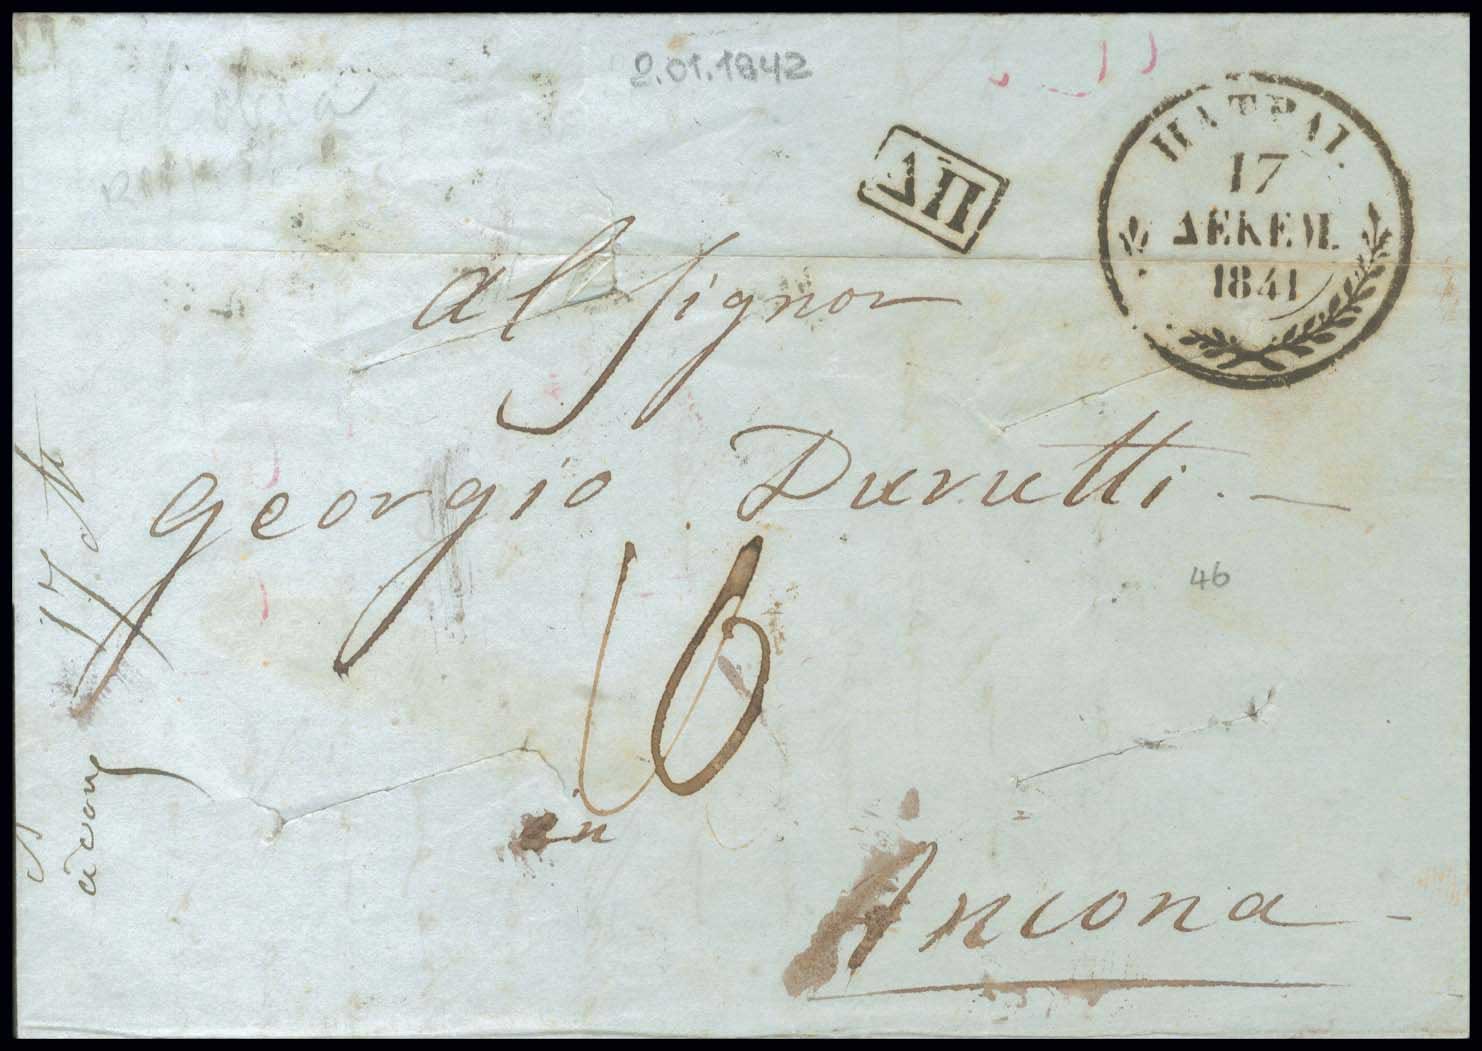 2.01.1842
ΔΠ
ΠΑΤΡΑΙ.
17
ΔΕΚΕΜ.
1841
Al Signor
Georgio Durutti.
46
16
in
Ancona
17